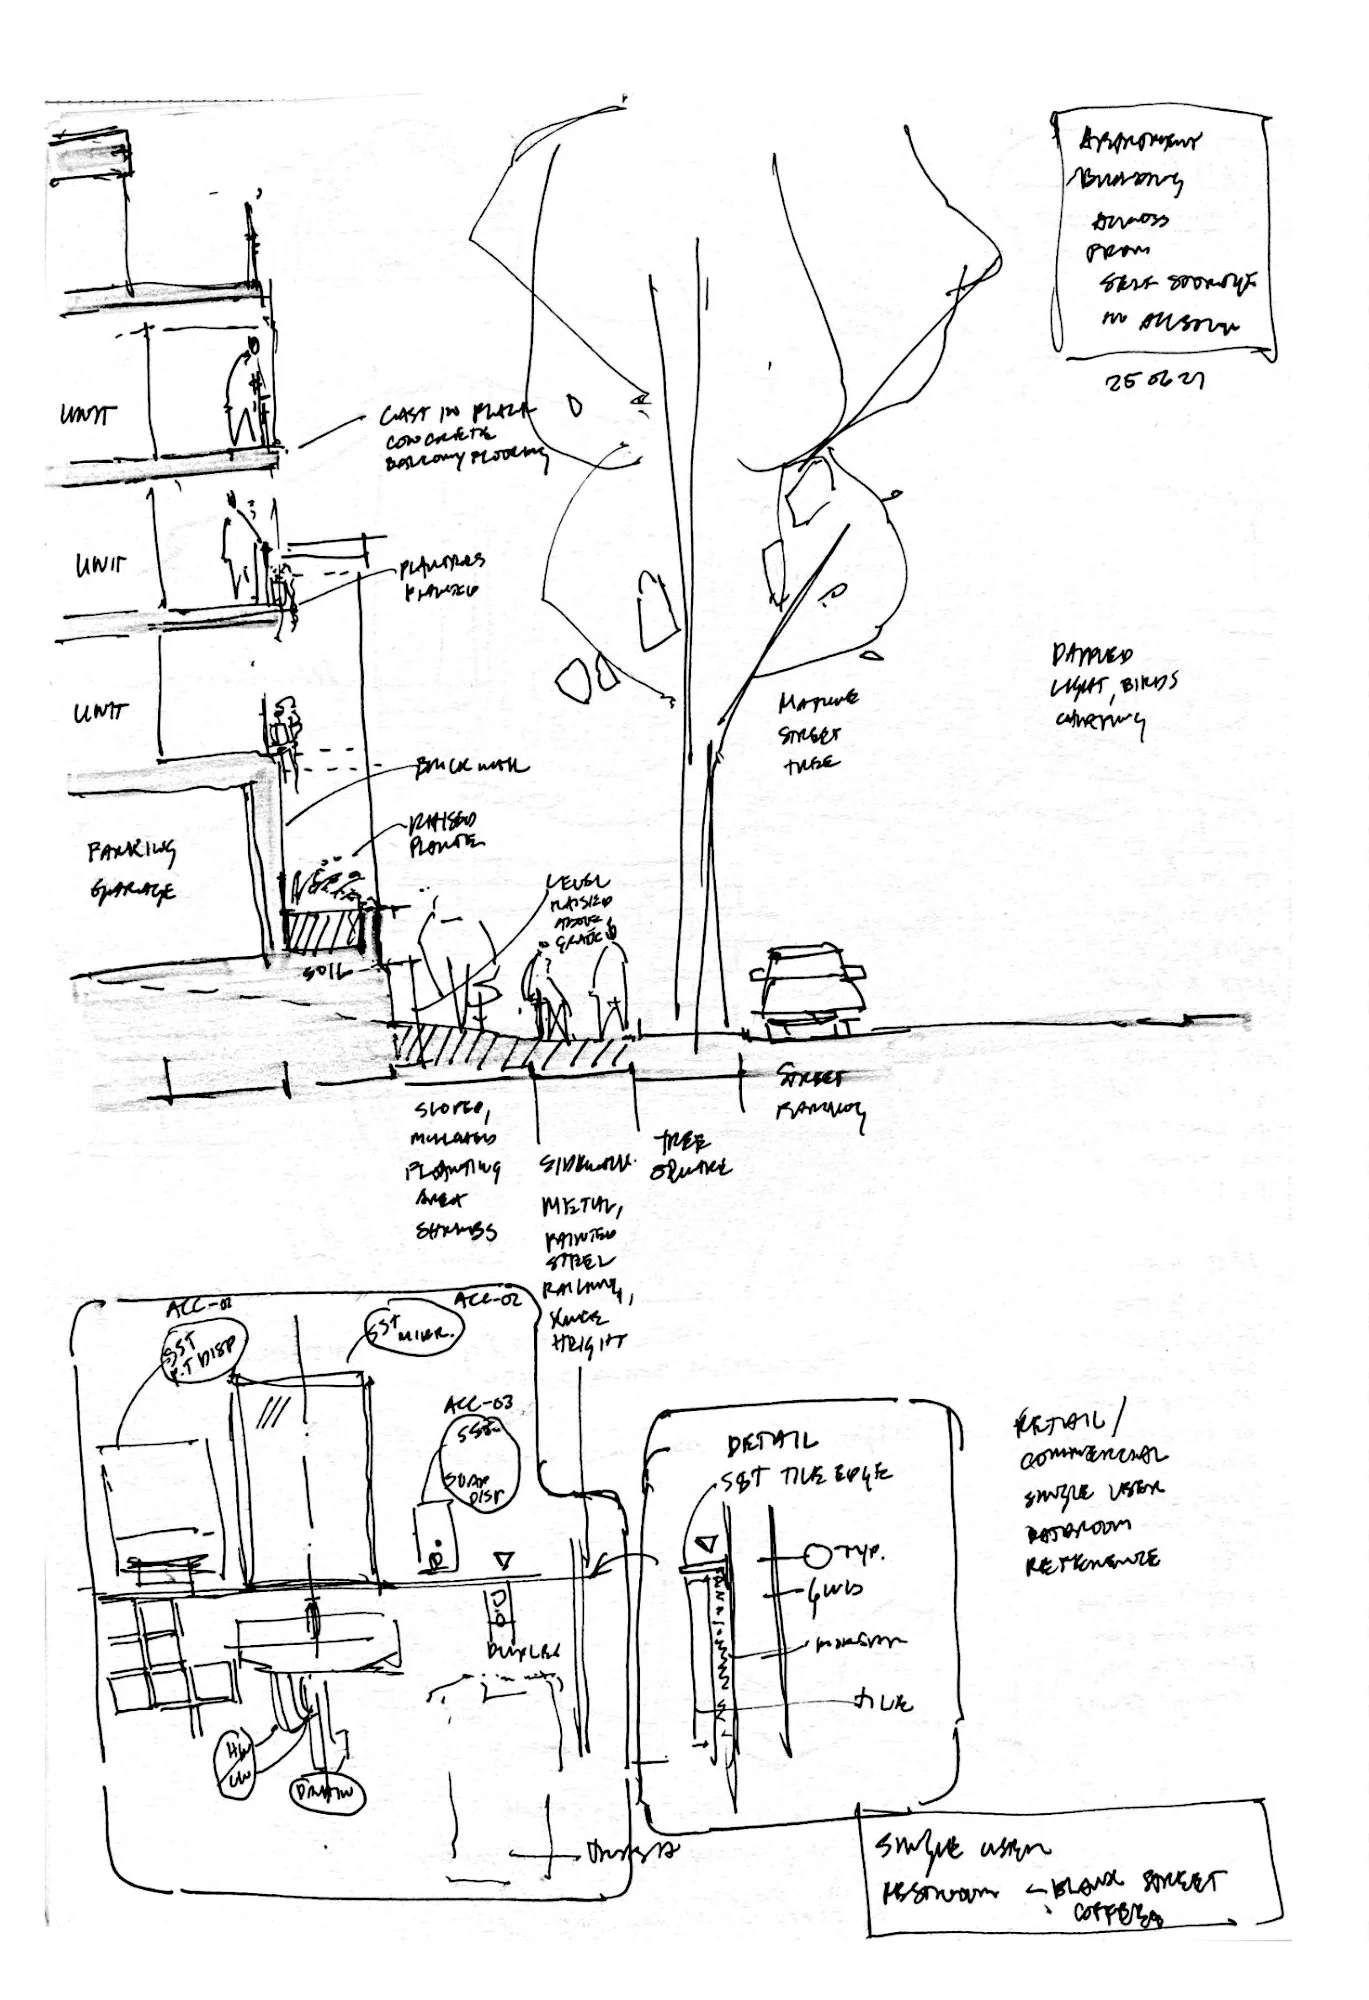 APARTMENT
BUILDING
ACROSS
FROM
SELF STORAGE
IN ALLSTON
250627
UNIT
CAST IN PLACE
CONCRETE
BALCONY FLOORING
UNIT
PLANTERS
PLANTED
UNIT
DAPPLED
LIGHT, BIRDS
CHIRPING
MATURE
STREET
TREE
BRICK WALL
RAISED
PLANTER
PARKING
GARAGE
LEVEL
RAISED
ABOVE
GRADE
SOIL
STREET
PARKING
SLOPED,
MULCHED
PLANTING
AREA
SHRUBS
SIDEWALK
TREE
SQUARE
METAL,
PAINTED
STEEL
RAILING,
KNEE
HEIGHT
ACC-01
SST
P.T DISP
SST MIRR.
ACC-02
ACC-03
SST
SOAP
DISP
DUPLEX
HW
CW
DRAIN
DETAIL
SST TILE EDGE
TYP.
GWB
TILE
RETAIL/
COMMERCIAL
SINGLE USER
BATHROOM
REFERENCE
SINGLE USER
RESTROOM - BLANK STREET
COFFEE